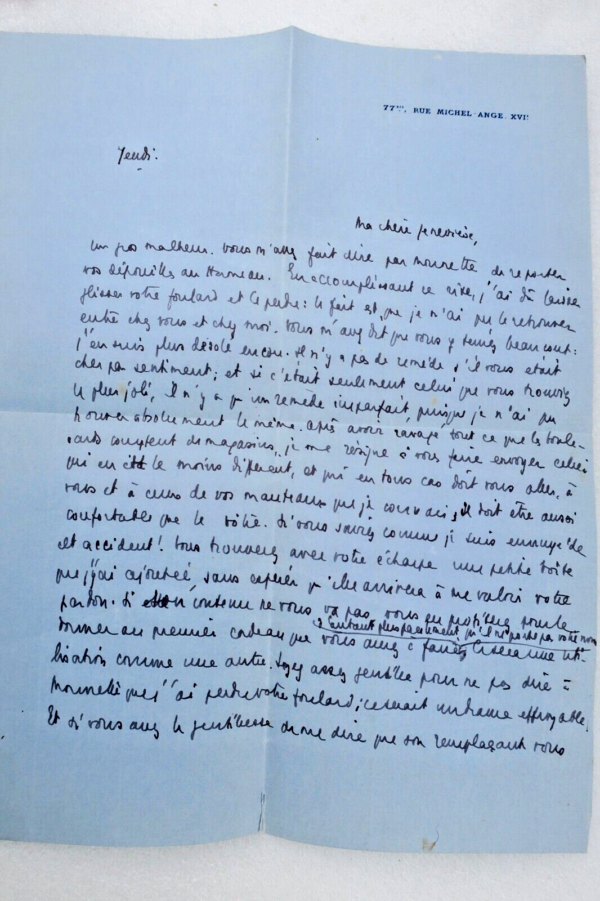 77bis, RUE MICHEL-ANGE. XVIe
Jeudi.
Ma chère Geneviève,
Un gros malheur. Vous m'avez fait dire par Mounette de reporter
vos dépouilles au Hameau. En accomplissant ce rite, j'ai dû laisser
glisser votre foulard et le perdre : le fait est que je n'ai pu le retrouver
entre chez vous et chez moi. Vous m'avez dit que vous y teniez beaucoup :
j'en suis plus désolé encore. Il n'y a pas de remède s'il vous était
cher par sentiment ; et si c'était seulement celui que vous trouviez
le plus joli, il n'y a qu'un remède imparfait, puisque je n'ai pu
trouver absolument le même. Après avoir ravagé tout ce que les boule-
vards comptent de magasins, je me résigne à vous faire envoyer celui
qui en est le moins différent, et qui en tous cas doit vous aller, à
vous et à ceux de vos manteaux que je connais ; il doit être aussi
confortable que le vôtre. Si vous saviez comme je suis ennuyé de
cet accident ! Vous trouverez avec votre écharpe une petite boîte
que j'ai ajoutée, sans espérer qu'elle arrivera à me valoir votre
pardon. Si contenu ne vous va pas, vous en profiterez pour le
donner au premier cadeau que vous aurez à faire,
d'autant plus facilement qu'il ne porte pas votre nom
c'est une uti-
lisation comme une autre. Soyez assez gentille pour ne pas dire à
Mounette que j'ai perdu votre foulard ; ce serait un drame effroyable.
Et si vous avez la gentillesse de me dire que son remplaçant vous